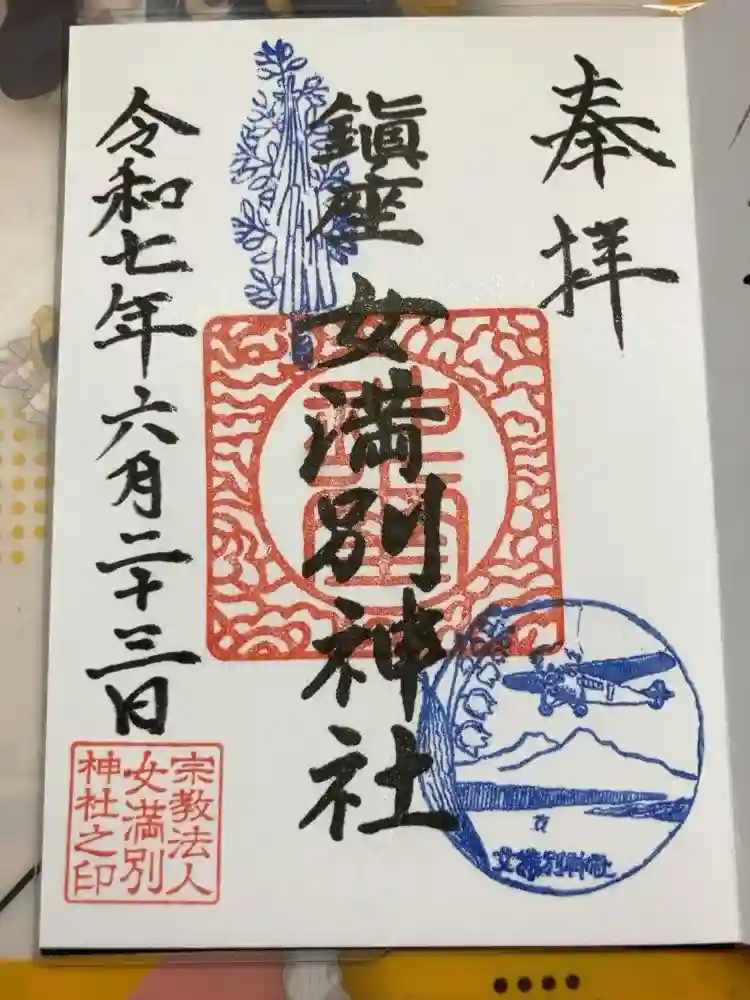 奉拝
鎮座
女満別神社
令和七年六月二十三日
宗教法人
女満別
神社之印
女満別神社